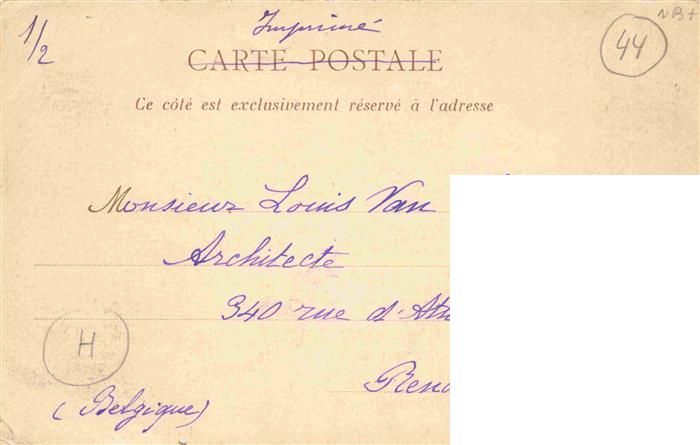 1/2
Imprimé
NB+
44
CARTE POSTALE
Ce côté est exclusivement réservé à l'adresse
Monsieur Louis Van
Architecte
340 rue d'
H
(Belgique)